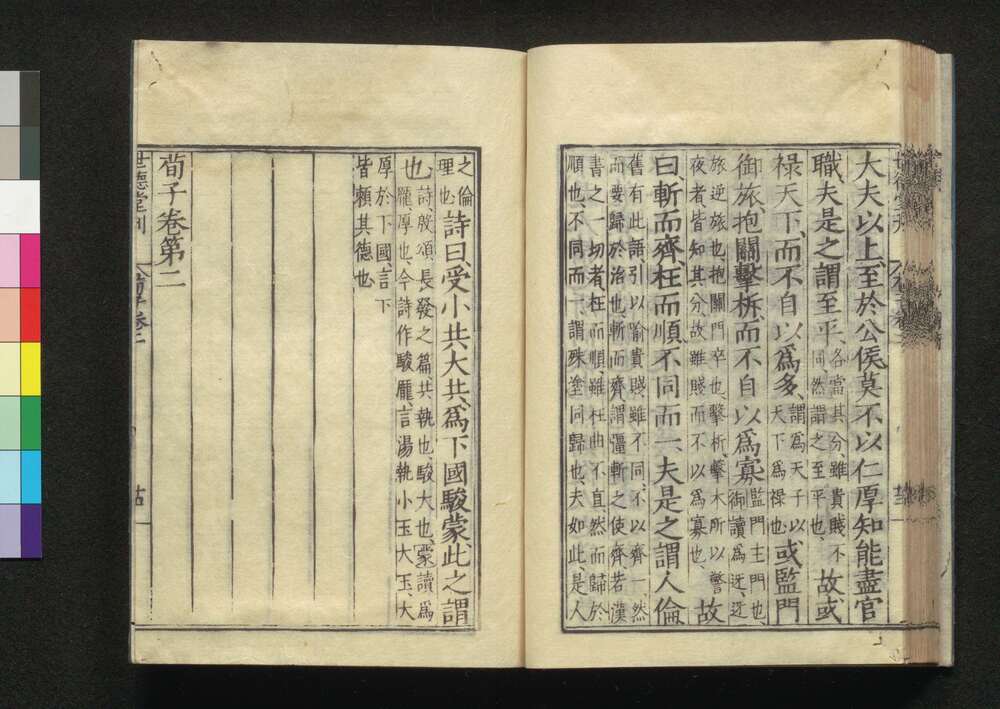 大夫以上、至於公侯、莫不以仁厚知能盡官
職、夫是之謂至平、各當其分、雖貴賤不
同、然謂之至平也、故或
祿天下、而不自以爲多、謂爲天子以
天下爲祿也、或監門
御旅、抱關擊柝、而不自以爲寡、監門、主門也、
御讀爲迓、迓
旅逆旅也、抱關門卒也、擊柝、擊木所以警
夜者、皆知其分、故雖賤而不以爲寡也、故
曰斬而齊、枉而順、不同而一、夫是之謂人倫、
舊有此語、引以喻貴賤雖不同、不以齊一、然
而要歸於治也、斬而齊、謂彊斬之使齊、若漢
書之一切者、枉而順、雖枉曲不直、然而歸於
順也、不同而一、謂殊塗同歸也、夫如此、是人
之倫
理也、詩曰、受小共大共、爲下國駿蒙、此之謂
也、詩殷頌、長發之篇、共、執也、駿、大也、蒙讀爲
厖、厚也、今詩作駿厖、言湯執小玉大玉、大
厚於下國、言下
皆賴其德也、
荀子卷第二
世德堂刊
荀子卷二